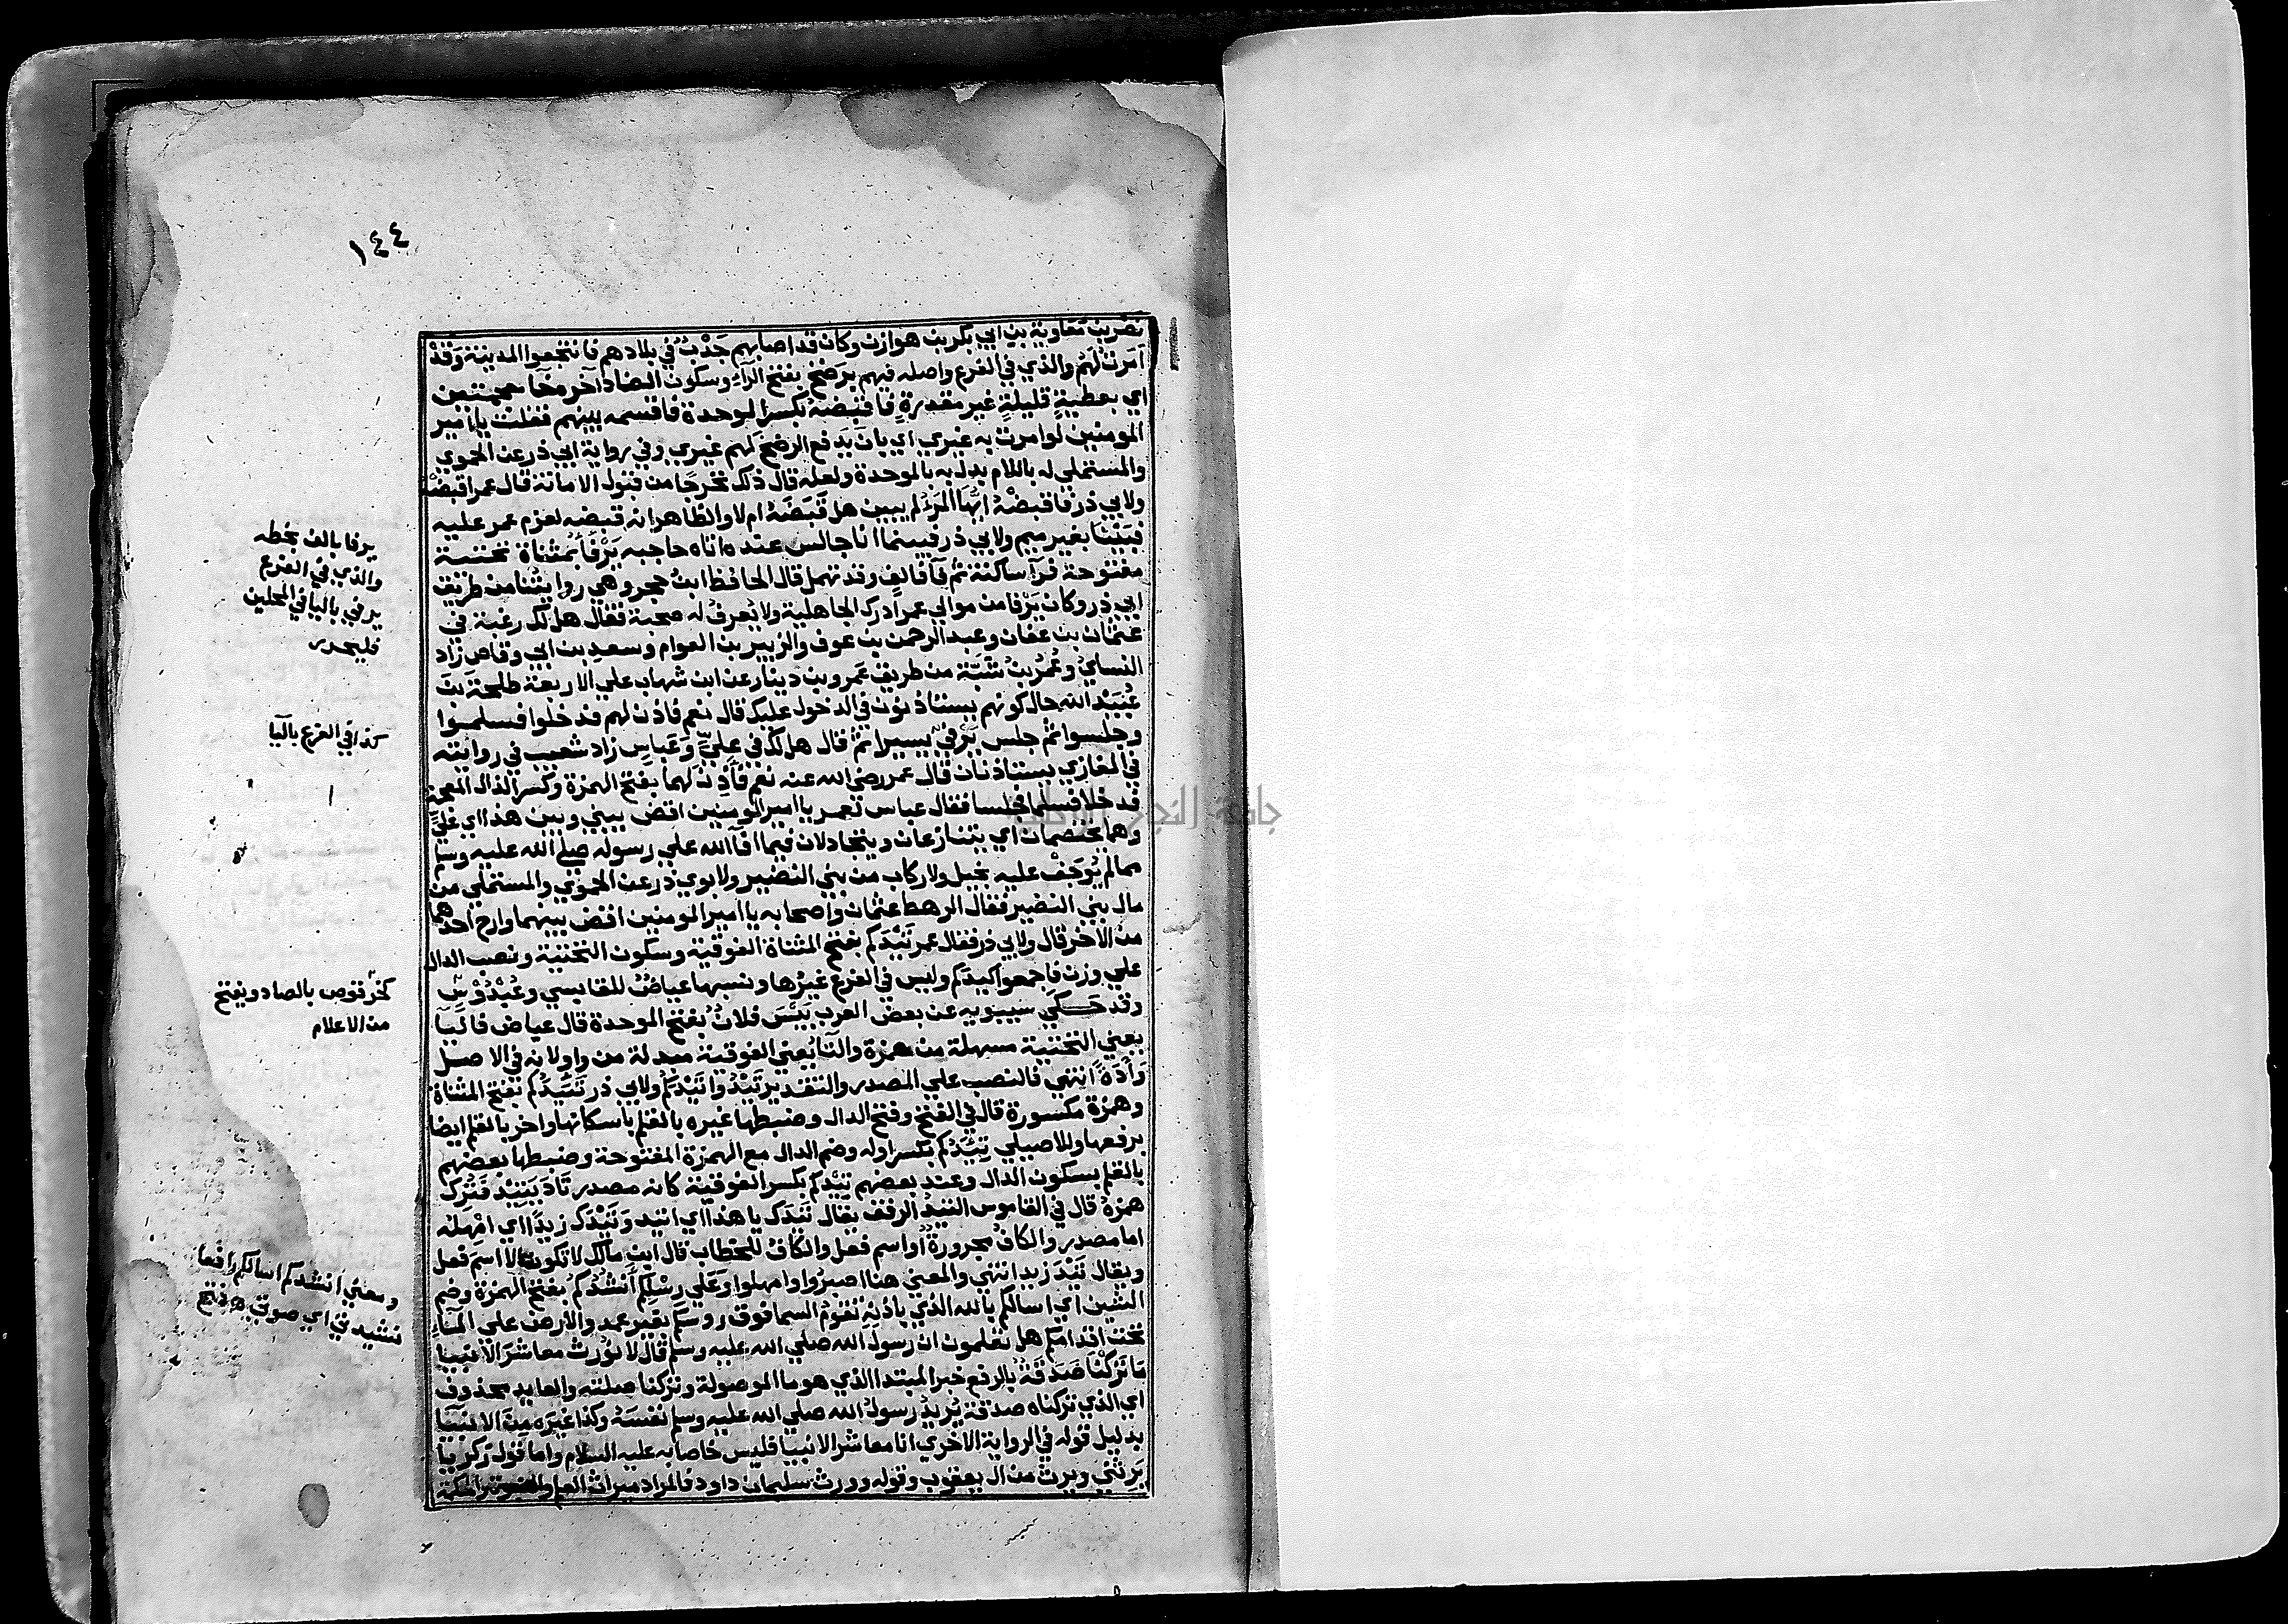 ١٤٤
نصر بن معاوية بن ابي بكر بن هوازن وكان قد اصابهم جَدْبٌ في بلادهم فانتجعوا المدينة وقد
اَمَرتُ لهم والذي في الفرع واصله فيهم برَضْخ بفتح الرآء وسكون الضاد آخره خا معجمتين
اي بعطيةٍ قليلةٍ غير مقدرةٍ فاقبِضْهُ بكسر الموحدة فاقسمه بينهم فقلت يا امير
المومنين لو امرت به غيري اي بان يَدفع الرضخ لهم غيري وفي رواية ابي ذر عن الحموي
والمستملي له باللام بدل به بالموحدة ولعله قال ذلك تحرجًا من قبول الامانة قال عمر اقبضْه
ولابي ذر فاقبضْهُ ايُّهَا المَرْءُ لم يبين هل قَبَضَهُ ام لا والظاهر انه قبضه لعزم عمر عليه
فبَيْنَا بغير ميم ولابي ذر فبينما انا جالس عنده اتاه حاجبه يَرْفَأ بمثناة تحتية
مفتوحة فرآ ساكنة ثم فآ فالفٍ وقد تهمل قال الحافظ ابن حجر وهي روايتنا من طريق
ابي ذر وكان يَرْفا من موالي عمر اَدرك الجاهلية ولا يُعرف له صحبة فقال هل لك رغبة في
عثمان بن عفان وعبد الرحمن بن عوف والزبير بن العوام وسعدِ بن ابي وقاص زاد
النساي وعُمرُ بنُ شَبَّة من طريق عَمرو بن دينار عن ابن شهاب علي الاربعة طلحةَ بنَ
عُبَيْد الله حال كونهم يستاذنون في الدخول عليك قال نعم فاذن لهم فدخلوا فسلموا
وجلسوا ثم جلس يَرْفِيْ يَسيرا ثم قال هل لك في عليٍّ وعَباسٍ زاد شعيب في روايته
في المغازي يستاذنان قال عمر رضي الله عنه نعم فَأَذِن لهما بفتح الهمزة وكسر الذال المعجمة
فدخلا فسلما فجلسا فقال عباس لعمر يا امير المومنين اقض بيني وبين هذا اي عليٍّ
وهما يختصمان اي يتنازعان ويتجادلان فيما افآ الله علي رسوله صلي الله عليه وسلم
مما لم يُوجَفْ عليه بخيل ولا ركاب من بني النضير ولابوي ذر عن الحموي والمستملي من
مال بني النضير فقال الرهط عثمان واصحابه يا امير المومنين اقض بينهما وارح احدهما
من الاخر قال ولابي ذر فقال عمر تَيْدَكم بفتح المثناة الفوقية وسكون التحتية ونصب الدال
علي وزن فاجمعوا كيدكم وليس في الفرع غيرُها ونسبها عياض للقابسي وعُبْدُوْس
وقد حكي سيبويه عن بعض العرب بَيْسَ فلانٌ بفتح الموحدة قال عياض فاليآ
يعني التحتية مسهلة من همزة والتآ يعني الفوقية مبدلة من واو لانه في الاصل
وَأْدَةً انتهي فالنصب علي المصدر والتقدير تَيْدُوا تَيْدَكُم ولابي ذر تَئِيدَكُم بفتح المثناة
وهمزة مكسورة قال في الفتح وفتح الدال وضبطها غيره بالقلم باسكانها واخر بالقلم ايضا
برفعها وللاصيلي تِئَدُكم بكسر اوله وضم الدال مع الهمزة المفتوحة وضبطها بعضهم
بالقلم بسكون الدال وعند بعضهم تِيْدكم بكسر الفوقية كانه مصدر تَادَ يَتِيْد فَتُرِك
همزهُ قال في القاموس التيْدُ الرفق يقال تَيْدَك يا هذا اي اتيد وتَيْدَك زيدًا اي امْهِلْه
اما مصدر والكاف مجرورةٌ او اسم فعل والكاف للخطاب قال ابن مالك لا تكون الا اسم فعل
ويقال تَيْدَ زيد انتهي والمعني هنا اصبرُوا وامهلوا وعلي رِسْلِكم أنشُدُكم بفتح الهمزة وضم
الشين اي اسالكم بالله الذي باذنه تقوم السما فوق روسكم بغير عمد والارض علي المآء
تحت اقدامكم هل تعلمون ان رسول الله صلي الله عليه وسلم قال لا نُوْرَث معاشر الانبيا
مَا تَرَكْنَا صَدَقةٌ بالرفع خبر المبتدا الذي هو ما الموصولة وتركنا صلته والعايد محذوف
اي الذي تركناه صدقة يُريدُ رسولُ الله صلي الله عليه وسلم نفسَهُ وكذا غيرَه مِنَ الانبيآ
بدليل قوله في الرواية الاخري انا معاشر الانبيا فليس خاصا به عليه السلام واما قول زكريا
يَرِثُني ويرث من ال يعقوب وقوله وورث سليمان داود فالمراد ميراث العلم والنبوة والحكمة
يرفا بالف بخطه
والذي في الفرع
يرفي باليا في المحلين
فليحرر
كذا في الفرع باليآ
من الاعلام
ومعني انشدكم اسالكم رافعا
نشيدتي اي صوتي
جامعة النجاح الوطنية